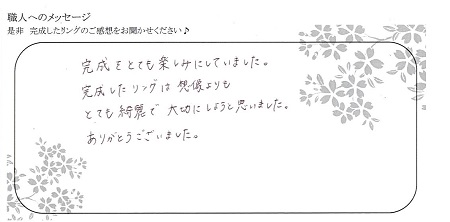 職人へのメッセージ
是非 完成したリングのご感想をお聞かせください♪
完成をとても楽しみにしていました。
完成したリングは想像よりも
とても綺麗で大切にしようと思いました。
ありがとうございました。